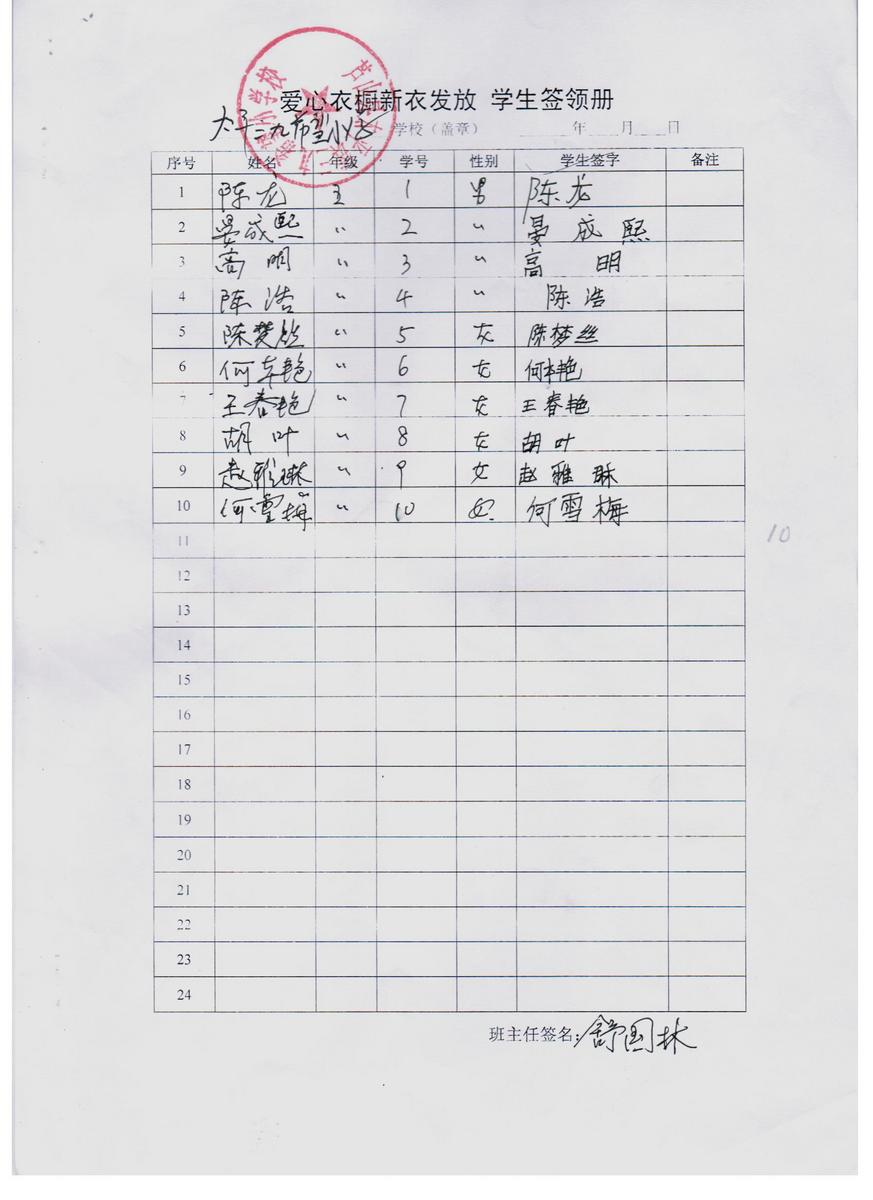 爱心衣橱新衣发放 学生签领册
学校（盖章） 年 月 日
序号 姓名 年级 学号 性别 学生签字 备注
1 陈龙 1 男 陈龙
2 晏成熙 〃 2 〃 晏成熙
3 高明 〃 3 〃 高明
4 陈浩 〃 4 〃 陈浩
5 〃 5 女 陈梦丝
6 〃 6 女
7 王春艳 〃 7 女 王春艳
8 胡叶 〃 8 女 胡叶
9 赵雅琳 〃 9 女 赵雅琳
10 何雪梅 〃 10 女 何雪梅
11
10
12
13
14
15
16
17
18
19
20
21
22
23
24
班主任签名：舒国林